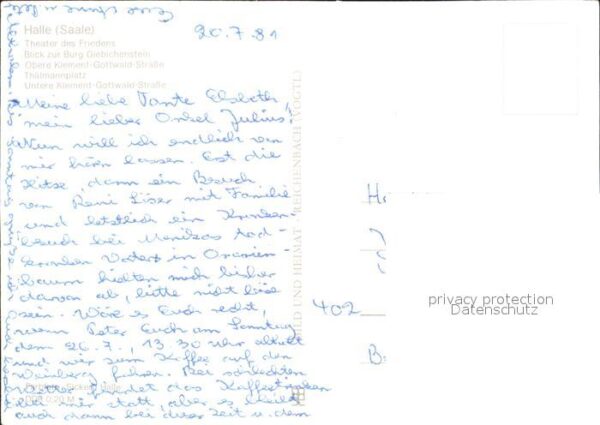 Halle (Saale)
Theater des Friedens
Blick zur Burg Giebichenstein
Obere Klement-Gottwald-Straße
Thälmannplatz
Untere Klement-Gottwald-Straße
20.7.81
Meine liebe Tante Elsbeth,
mein lieber Onkel Julius!
Nun will ich endlich von
mir hören lassen. Erst die
Hitze, dann ein Besuch
von mit Familie
und letztlich ein Kranken-
besuch bei Monikas tod-
kranken Vater in Oranien-
baum hielten mich bisher
davon ab, bitte nicht böse
sein. Wäre es Euch recht,
wenn Peter Euch am Sonntag,
dem 26.7., 13.30 Uhr abholt
und wir zum Kaffee auf den
Weinberg fahren. Bei schlechtem
Wetter findet das Kaffeetrinken
bei mir statt, aber es bleibt
auch dann bei dieser Zeit u. dem
BILD UND HEIMAT REICHENBACH (VOGTL)
402
privacy protection
Datenschutz